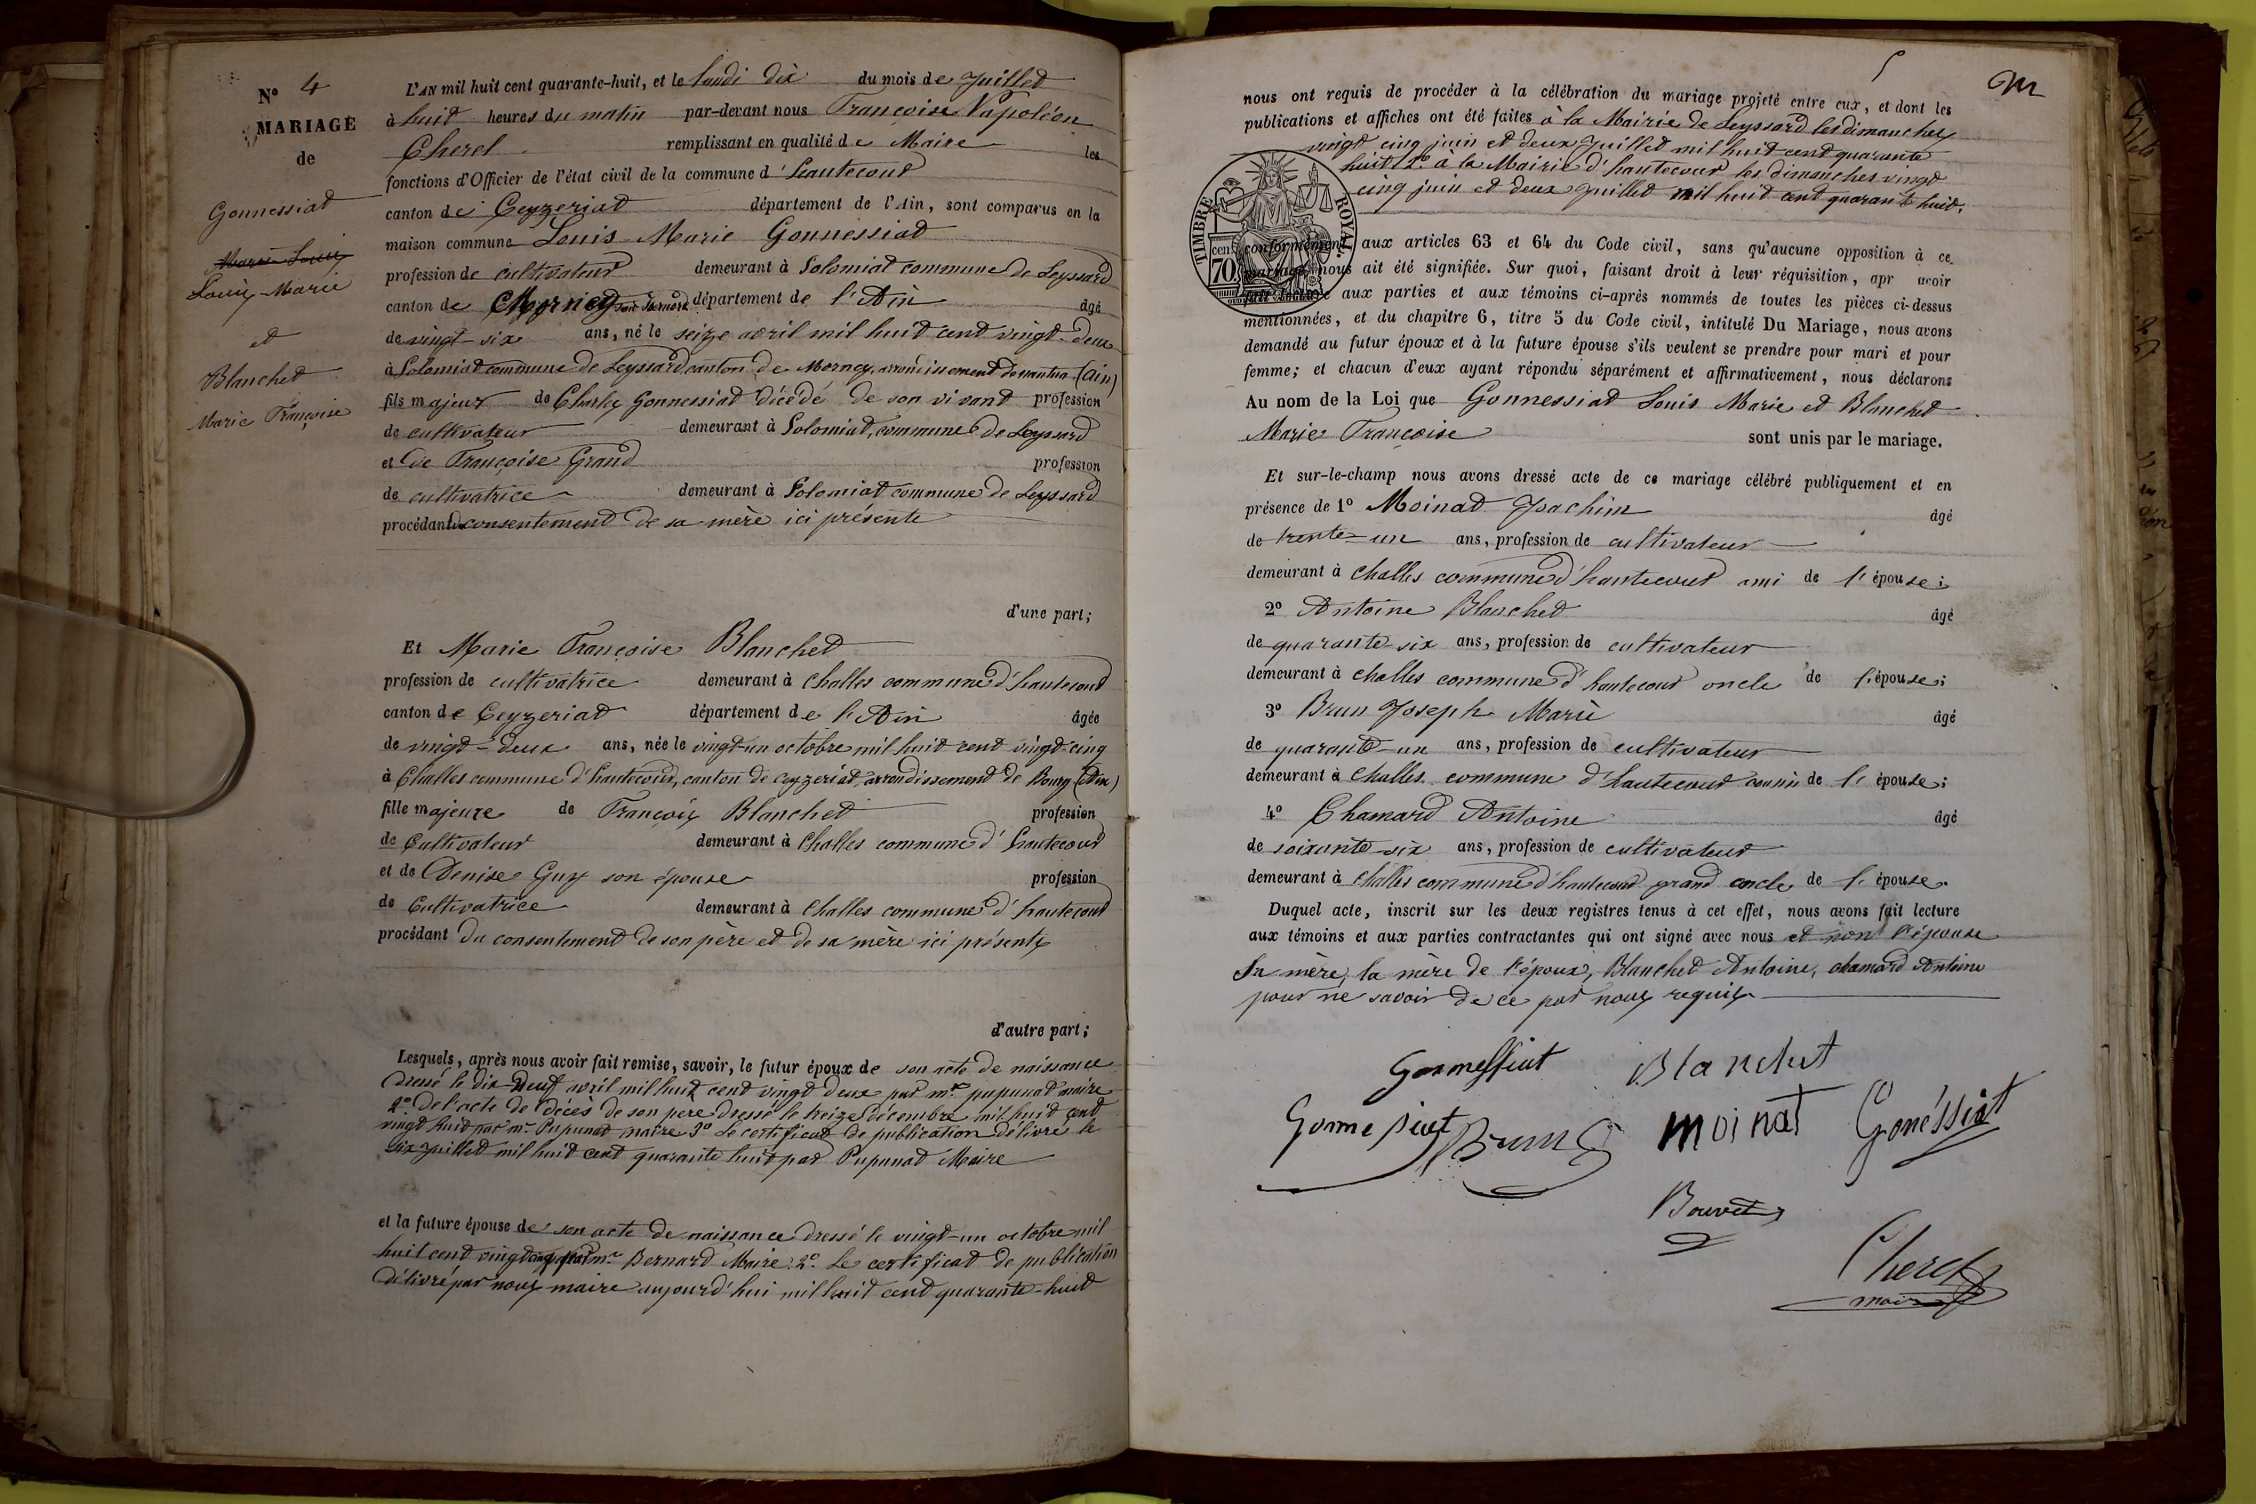 N° 4
MARIAGE
de
Gonnessiat
Marie Louis
Louis-Marie
et
Blanchet
Marie Françoise
L'AN mil huit cent quarante-huit, et le lundi dix du mois de juillet
à huit heures du matin par-devant nous Françoise Napoléon
Cherel remplissant en qualité de Maire les
fonctions d'Officier de l'état civil de la commune d'hautecourt
canton de Ceyzeriat département de l'Ain, sont comparus en la
maison commune Louis Marie Gonnessiat
profession de cultivateur demeurant à Solomiat commune de Leyssard
canton de département de l'Ain âgé
de vingt-six ans, né le seize avril mil huit cent vingt-deux
à Solomiat commune de Leyssard canton de Mornay, arrondissement de nantua (ain)
fils majeur de Charles Gonnessiat décédé de son vivant profession
de cultivateur demeurant à Solomiat, commune de Leyssard
et de Françoise Grand profession
de cultivatrice demeurant à Solomiat commune de Leyssard
procédant du consentement de sa mère ici présente
d'une part;
Et Marie Françoise Blanchet
profession de cultivatrice demeurant à Challes commune d'hautecourt
canton de Ceyzeriat département de l'Ain âgée
de vingt-deux ans, née le vingt-un octobre mil huit cent vingt-cinq
à Challes commune d'hautecourt, canton de ceyzeriat, arrondissement de Bourg (Ain)
fille majeure de François Blanchet profession
de Cultivateur demeurant à Challes commune d'hautecourt
et de Denise Guy son épouse profession
de Cultivatrice demeurant à Challes commune d'hautecourt
procédant du consentement de son père et de sa mère ici présents
d'autre part;
Lesquels, après nous avoir fait remise, savoir, le futur époux de son acte de naissance
dressé le dix neuf avril mil huit cent vingt deux par mr pupunat maire
2° de l'acte de décès de son pere dressé le treize décembre mil huit cent
vingt huit par mr Pupunat maire 3° Le certificat de publication délivré le
six juillet mil huit cent quarante huit par Pupunat Maire
et la future épouse de son acte de naissance dressé le vingt-un octobre mil
huit cent vingt cinq par mr Bernard Maire 2° Le certificat de publication
délivré par nous maire aujourd'hui mil huit cent quarante-huit
nous ont requis de procéder à la célébration du mariage projeté entre eux, et dont les
publications et affiches ont été faites à la Mairie de Leyssard les dimanches
vingt cinq juin et deux Juillet mil huit cent quarante
huit 2° à la Mairie d'hautecour les dimanches vingt
cinq juin et deux juillet mil huit cent quarante huit.
TIMBRE ROYAL
cent
70
conformément aux articles 63 et 64 du Code civil, sans qu'aucune opposition à ce
mariage nous ait été signifiée. Sur quoi, faisant droit à leur réquisition, apr avoir
fait lecture aux parties et aux témoins ci-après nommés de toutes les pièces ci-dessus
mentionnées, et du chapitre 6, titre 5 du Code civil, intitulé Du Mariage, nous avons
demandé au futur époux et à la future épouse s'ils veulent se prendre pour mari et pour
femme; et chacun d'eux ayant répondu séparément et affirmativement, nous déclarons
Au nom de la Loi que Gonnessiat Louis Marie et Blanchet
Marie Françoise sont unis par le mariage.
Et sur-le-champ nous avons dressé acte de ce mariage célébré publiquement et en
présence de 1° Moinat Joachim âgé
de trente-un ans, profession de cultivateur
demeurant à Challes commune d'hautecourt ami de l'épouse;
2° Antoine Blanchet âgé
de quarante-six ans, profession de cultivateur
demeurant à Challes commune d'hautecour oncle de l'épouse;
3° Brun Joseph Marie âgé
de quarante-un ans, profession de cultivateur
demeurant à Challes commune d'hautecourt cousin de l'épouse;
4° Chamard Antoine âgé
de soixante-six ans, profession de cultivateur
demeurant à Challes commune d'hautecourt grand oncle de l'épouse.
Duquel acte, inscrit sur les deux registres tenus à cet effet, nous avons fait lecture
aux témoins et aux parties contractantes qui ont signé avec nous et non l'épouse
Sa mère, la mère de l'époux, Blanchet Antoine, chamard Antoine
pour ne savoir de ce par nous requis
Gonnessiat Blanchet
Gonnessiat Brun moinat Gonéssiat
Bouvet
Cherel
maire